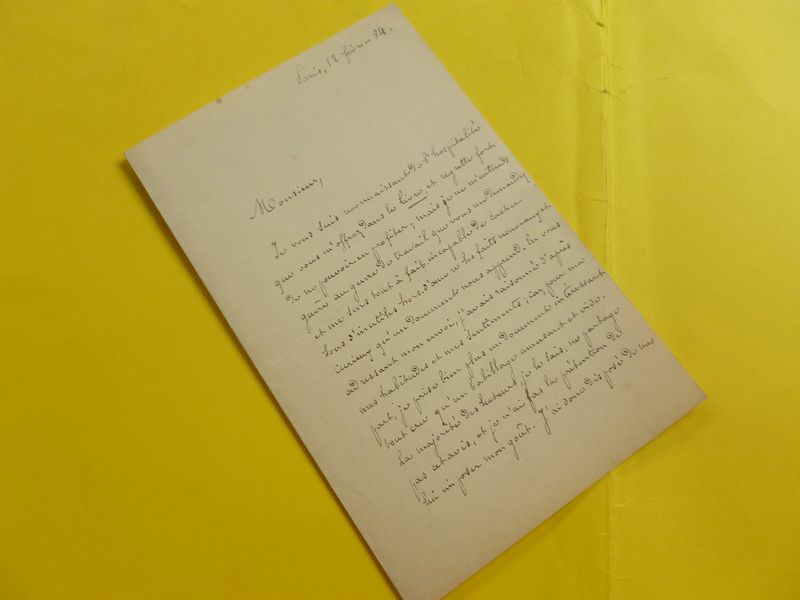 Paris, 12 février 84.
Monsieur,
Je vous suis reconnaissant de l'hospitalité
que vous m'offrez dans le Livre, et regrette fort
de ne pouvoir en profiter; mais je ne m'entends
guère au genre de travail que vous me demandez,
et me sens tout à fait incapable de cacher
sous d'inutiles hors-d'œuvre les faits nouveaux et
curieux qu'un document nous apprend. En vous
adressant mon envoi, j'avais raisonné d'après
mes habitudes et mes sentiments; car, pour ma
part, je prise bien plus un document intéressant
tout cru qu'un habillage amusant et vide.
La majorité des lecteurs, je le sais, ne partage
pas cet avis, et je n'ai pas la prétention de
lui imposer mon goût. J'ai donc disposé de mes